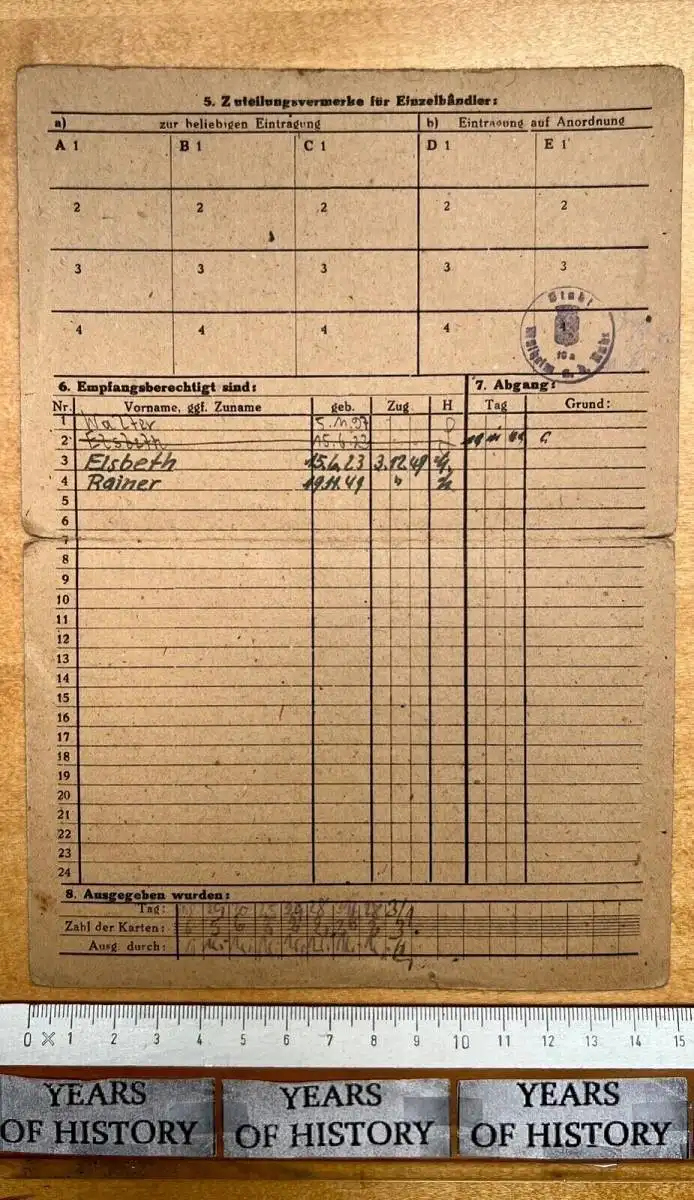 5. Zuteilungsvermerke für Einzelhändler:
a) zur beliebigen Eintragung b) Eintragung auf Anordnung
A 1 B 1 C 1 D 1 E 1
2 2 2 2 2
3 3 3 3 3
4 4 4 4 4
Stadt
Mülheim a. d. Ruhr
10 a
6. Empfangsberechtigt sind: 7. Abgang:
Nr. Vorname, ggf. Zuname geb. Zug H Tag Grund:
1 Walter
2 Elsbeth
3 Elsbeth 15.6.23 3.12.49
4 Rainer 19.11.49 "
5
6
7
8
9
10
11
12
13
14
15
16
17
18
19
20
21
22
23
24
8. Ausgegeben wurden:
Tag:
Zahl der Karten:
Ausg. durch:
0 1 2 3 4 5 6 7 8 9 10 11 12 13 14 15
YEARS OF HISTORY YEARS OF HISTORY YEARS OF HISTORY